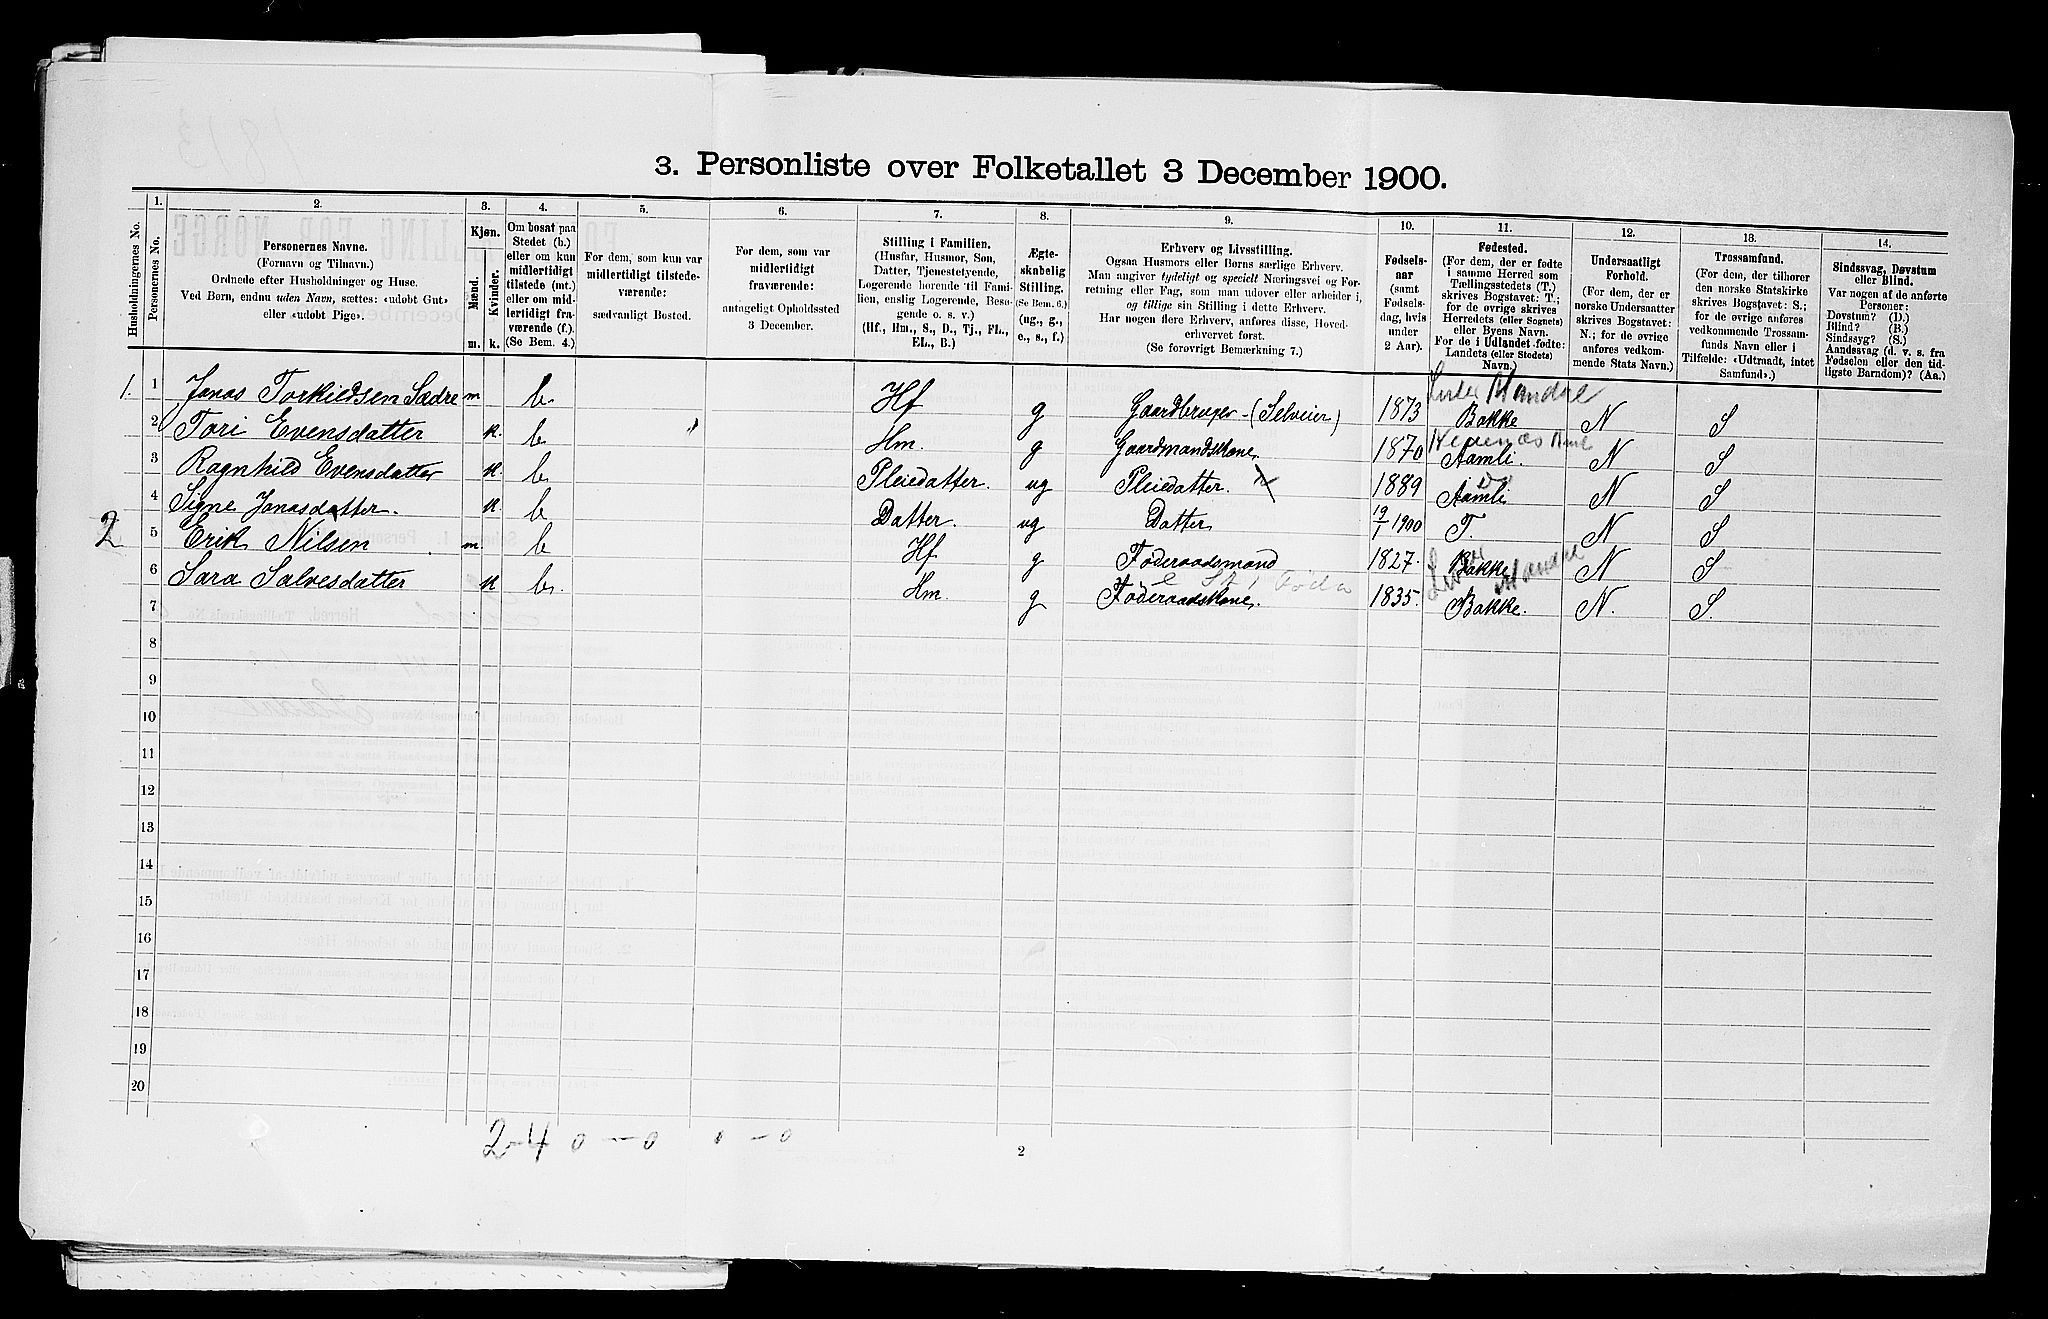 3. Personliste over Folketallet 3 December 1900.
Husholdningernes No.
1.
Personernes No.
2.
Personernes Navne.
(Fornavn og Tilnavn.)
Ordnede efter Husholdninger og Huse.
Ved Børn, endnu uden Navn, sættes: «udøbt Gut»
eller «udøbt Pige».
3.
Kjøn.
Mænd.
Kvinder.
m. k.
4.
Om bosat paa
Stedet (b.)
eller om kun
midlertidigt
tilstede (mt.)
eller om mid-
lertidigt fra-
værende (f.)
(Se Bem. 4.)
5.
For dem, som kun var
midlertidigt tilstede-
værende:
sædvanligt Bosted.
6.
For dem, som var
midlertidigt
fraværende:
antageligt Opholdssted
3 December.
7.
Stilling i Familien.
(Husfar, Husmor, Søn,
Datter, Tjenestetyende,
Logerende hørende til Fami-
lien, enslig Logerende, Besø-
gende o. s. v.)
(Hf., Hm., S., D., Tj., FL.,
EL., B.)
8.
Ægte-
skabelig
Stilling.
(Se Bem. 6.)
(ug., g.,
e., s., f.)
9.
Erhverv og Livsstilling.
Ogsaa Husmors eller Børns særlige Erhverv.
Man angiver tydeligt og specielt Næringsvei og For-
retning eller Fag, som man udover eller arbeider i,
og tillige sin Stilling i dette Erhverv.
Har nogen flere Erhverv, anføres disse, Hoved-
erhvervet først.
(Se forøvrigt Bemærkning 7.)
10.
Fødsels-
aar
(samt
Fødsels-
dag, hvis
under
2 Aar).
11.
Fødested.
(For dem, der er fødte
i samme Herred som
Tællingsstedets (T.)
skrives Bogstavet: T.;
for de øvrige skrives
Herredets (eller Sognets)
eller Byens Navn.
For de i Udlandet fødte:
Landets (eller Stedets)
Navn.)
12.
Undersaatligt
Forhold.
(For dem, der er
norske Undersaatter
skrives Bogstavet:
N.; for de øvrige
anføres vedkom-
mende Stats Navn.)
13.
Trossamfund.
(For dem, der tilhører
den norske Statskirke
skrives Bogstavet: S.;
for de øvrige anføres
vedkommende Trossam-
funds Navn eller i
Tilfælde: «Udtraadt, intet
Samfund».)
14.
Sindssvag, Døvstum
eller Blind.
Var nogen af de anførte
Personer:
Døvstum? (D.)
Blind? (B.)
Sindssyg? (S.)
Aandssvag (d. v. s. fra
Fødselen eller den tid-
ligste Barndom)? (Aa.)
1. 1 Jonas Torkildsen Sædre m b. Hf g Gaardbruger - (Selveier) 1873 Bakke N S
2 Tori Evensdatter k. b Hm. g Gaardmandskone. 1870 Aamli. N S
3 Ragnhild Evensdatter k b. Pleiedatter. ug Pleiedatter. 1889 Aamli N S
4 Signe Jonasdatter. k. b Datter. ug Datter 19/1 1900 T. N S
2 5 Erik Nilsen m b Hf g Føderaadsmand 1827. Bakke N S
6 Sara Salvesdatter k b. Hm. g Føderaadskone. 1835. Bakke. N. S.
7
8
9
10
11
12
13
14
15
16
17
18
19
20
2-4 0-0 0-0
2